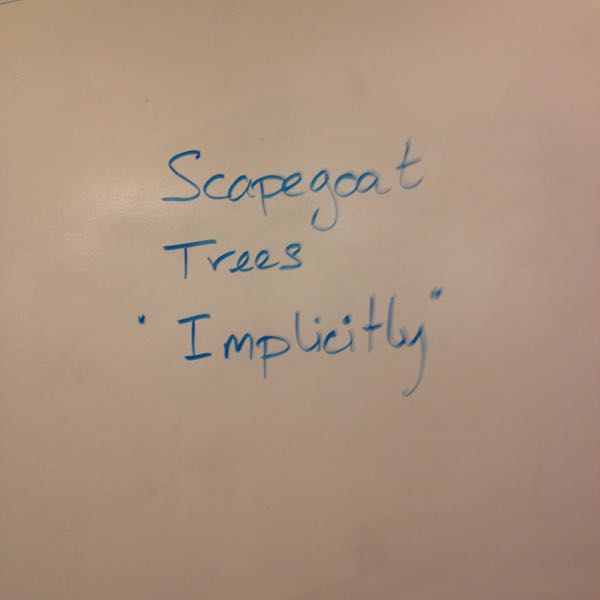 Scapegoat
Trees
"Implicitly"